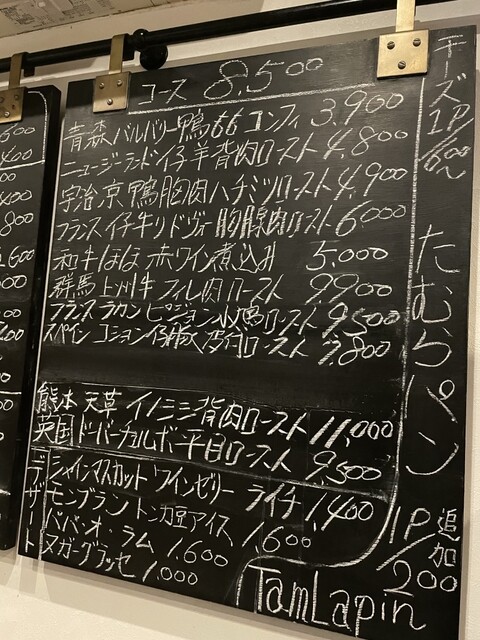 コース 8,500
青森バルバリー鴨もも コンフィ 3,900
ニュージーランド仔羊背肉ロースト 4,800
宇治京鴨胸肉ハチミツロースト 4,900
フランス仔牛リドヴォー胸腺肉ロースト 6,000
和牛ほほ赤ワイン煮込み 5,000
群馬上州牛フィレ肉ロースト 9,900
フランスラカンピジョン小鳩ロースト 9,500
スペインコション仔豚皮付ロースト 7,800
熊本天草イノシシ背肉ロースト 11,000
英国ドーバーチュルボー平目ロースト 9,500
デザート
シャインマスカットワインゼリーライチ 1,400
モンブラントンカ豆アイス 1,600
ババ・オ・ラム 1,600
ヌガーグラッセ 1,000
チーズ1P/600〜
たむらパン
1P/200
追加
TamLapin
600
400
400
800
1,600